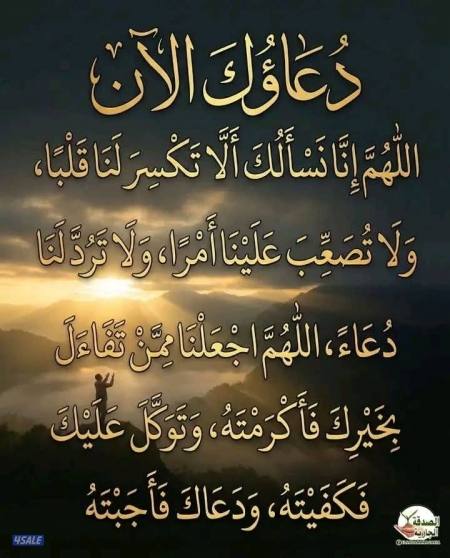 دُعَاؤُكَ الْآن
اللَّهُمَّ إِنَّا نَسْأَلُكَ أَلَّا تَكْسِرَ لَنَا قَلْبًا،
وَلَا تُصَعِّبَ عَلَيْنَا أَمْرًا، وَلَا تَرُدَّ لَنَا
دُعَاءً، اللَّهُمَّ اجْعَلْنَا مِمَّنْ تَفَاءَلَ
بِخَيْرِكَ فَأَكْرَمْتَهُ، وَتَوَكَّلَ عَلَيْكَ
فَكَفَيْتَهُ، وَدَعَاكَ فَأَجَبْتَهُ
الصدقة
الجارية
4SALE